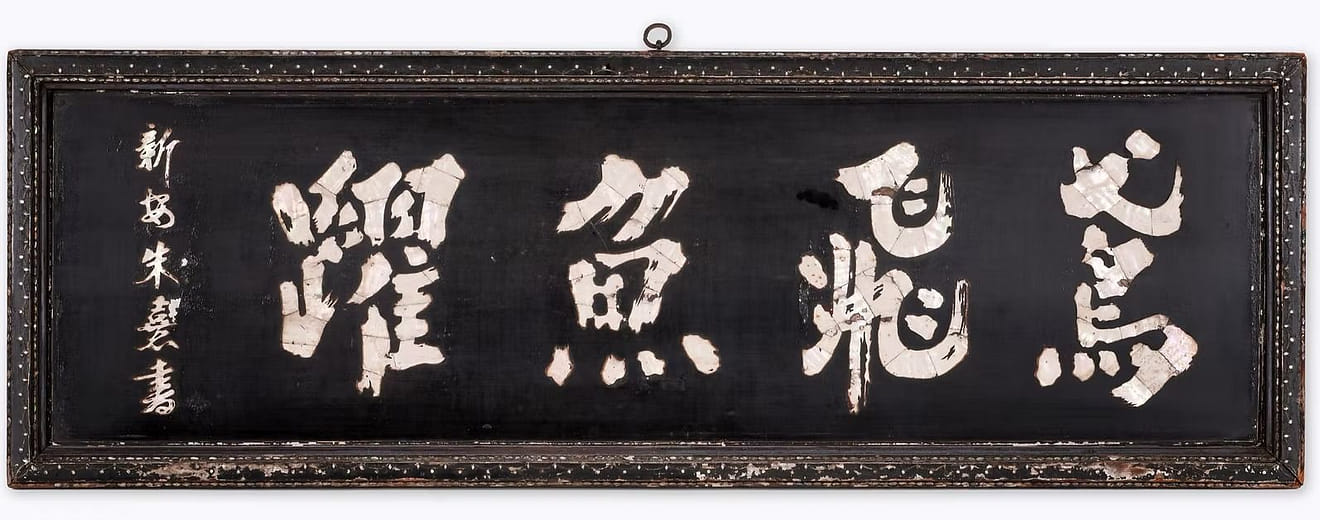 鳶飛魚躍
新安朱熹書